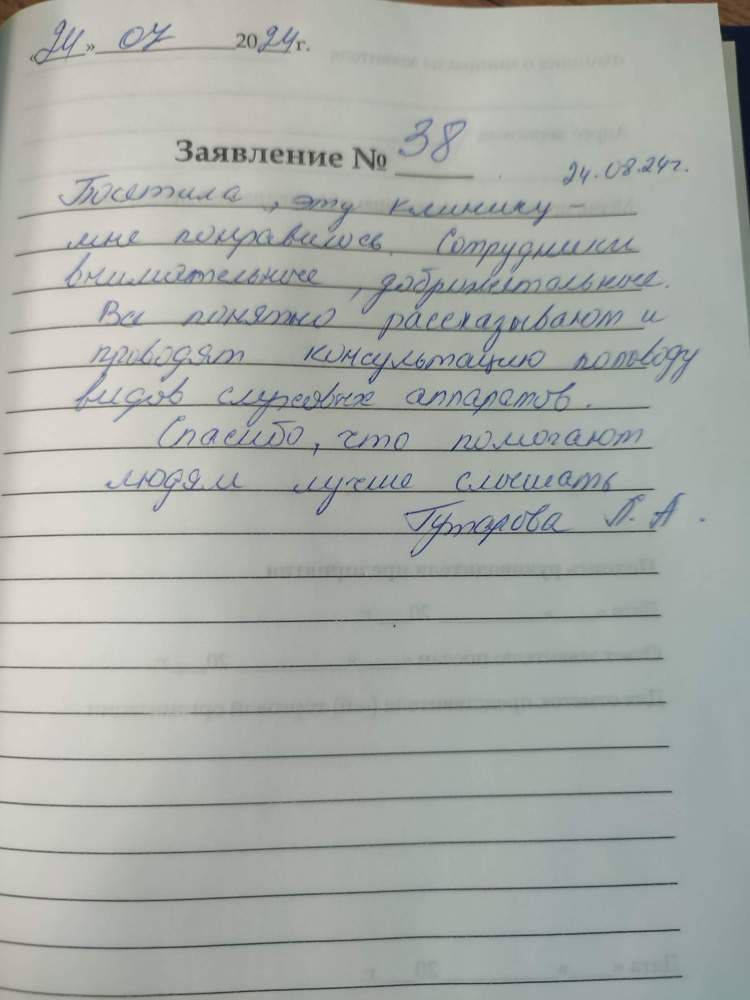 «24» 07 2024г.
Заявление № 38
24.08.24г.
Посетила, эту клинику -
мне понравилось. Сотрудники
внимательные, доброжительные.
Все понятно рассказывают и
проводят консультацию поповоду
видов слуховых аппаратов.
Спасибо, что помогают
людям лучше слышать
Гутарова Л. А.